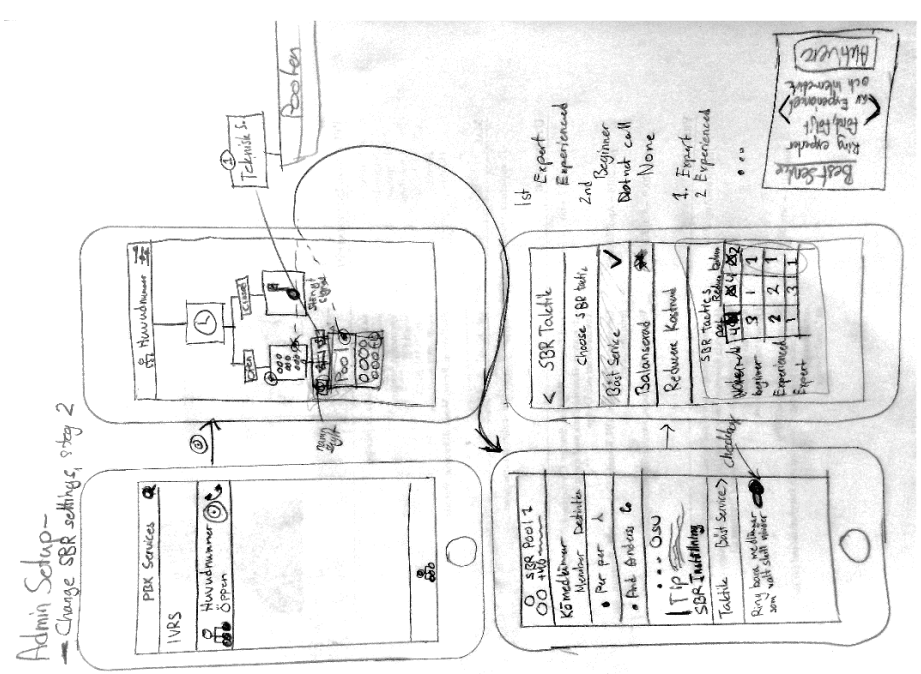 Admin Setup -
- Change SBR settings, steg 2
PBX Services
IVRS
Huvudnummer
Öppen
Huvudnummer
Open
Closed
Pool
namn
Stängt
signal
1
Teknisk S.
Poolen
SBR Pool 1
Kömedlemmar
Member Destination
Per
And Anders
Tip
SBR Inställning
Taktik Bäst Service >
Ring bara medlemmar
som valt skill nivåer
checkbox
< SBR Taktik
Choose SBR tactic
Bäst Service
Balanserad
Reducera Kostnad
SBR Tactics
beginner 3 1 1
Experienced 2 2 1
Expert 1 3 1
1st
Expert
Experienced
2nd
Beginner
Distinct call
None
1. Expert
2 Experienced
...
Best Service
Ring experter
först, följt
av Experienced
och
Aktivera